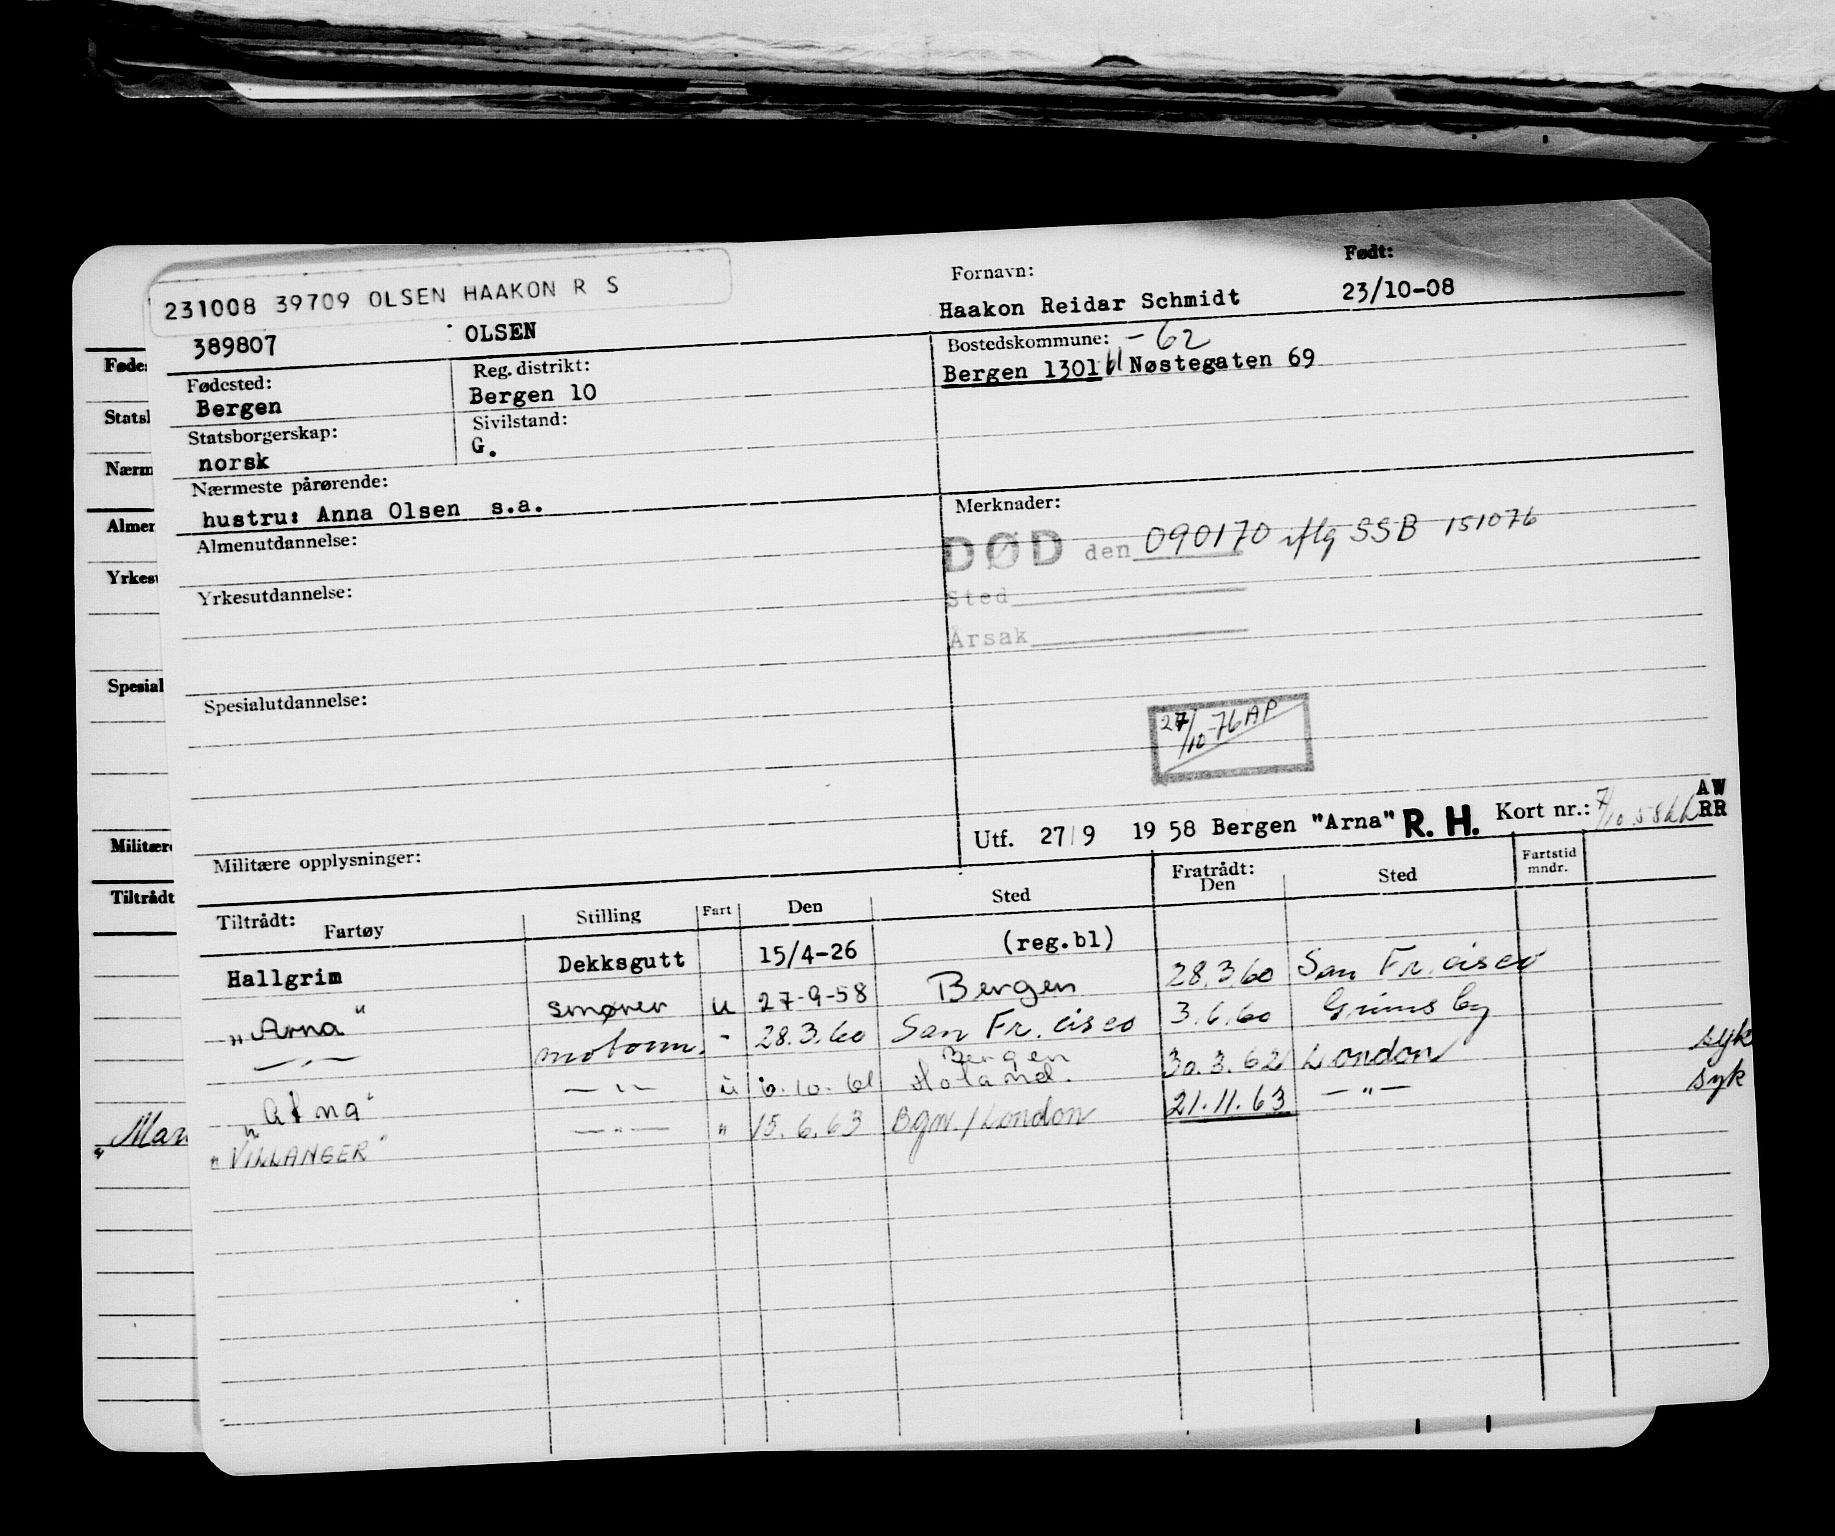 231008 39709 OLSEN HAAKON R S
Fornavn:
Født:
389807
OLSEN
Haakon Reidar Schmidt
23/10-08
Fødested:
Reg. distrikt:
Bostedskommune: -62
Bergen
Bergen 10
Bergen 1301 Nøstegaten 69
Statsborgerskap:
Sivilstand:
norsk
G.
Nærmeste pårørende:
hustru: Anna Olsen s.a.
Merknader:
Almenutdannelse:
DØD den 090170 iflg SSB 151076
Yrkesutdannelse:
Sted
Årsak
Spesialutdannelse:
27/10-76 AP
Militære opplysninger:
Utf. 27/9 1958 Bergen "Arna" R. H. Kort nr.: 7/10.58
AW
RR
Tiltrådt:
Fartøy
Stilling
Fart
Den
Sted
Fratrådt:
Den
Sted
Fartstid
mndr.
Hallgrim Dekksgutt 15/4-26 (reg.bl)
"Arna" smører u 27-9-58 Bergen 28.3.60 San Fr.cisco
—"— motorm. - 28.3.60 San Fr.cisco 3.6.60 Grimsby
Bergen
"Arna" —"— u 6.10.61 Holand. 30.3.62 London syk
"VILLANGER" —"— " 15.6.63 Bgn./London 21.11.63 —"— syk
Fødes
Statsl
Nærm
Almen
Yrkesu
Spesial
Militære
Tiltrådt
"Mar